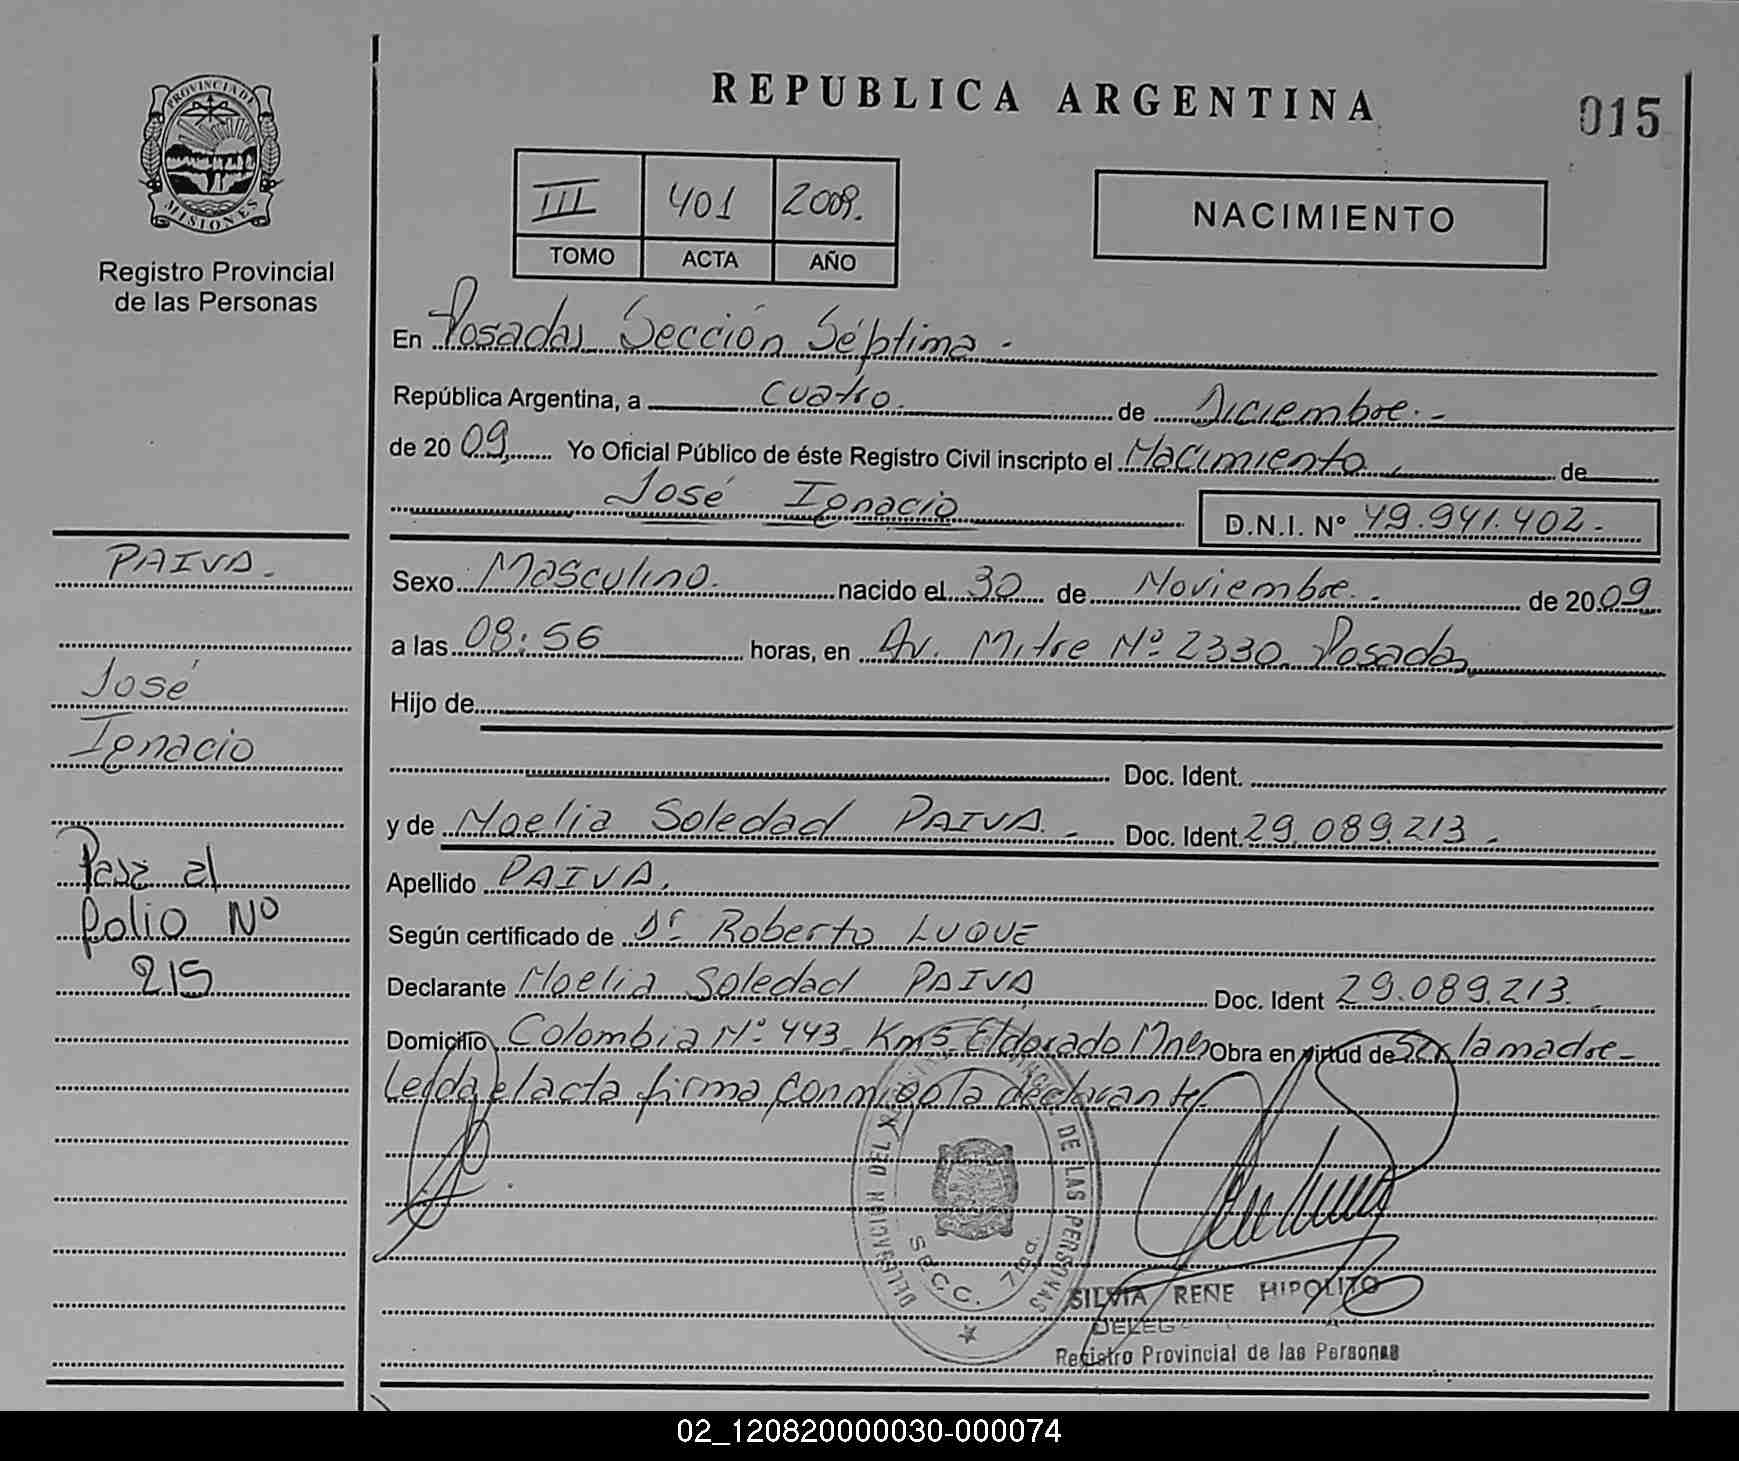 REPUBLICA ARGENTINA
015
PROVINCIA DE
MISIONES
Registro Provincial
de las Personas
III 401 2009.
TOMO ACTA AÑO
NACIMIENTO
En Posadas Sección Séptima.-
República Argentina, a cuatro. de Diciembre.-
de 20 09, Yo Oficial Público de éste Registro Civil inscripto el Nacimiento de
José Ignacio
D.N.I. Nº 49.941.402.-
PAIVA.
José
Ignacio
Pasa al
folio Nº
215
Sexo Masculino. nacido el 30 de Noviembre.- de 20 09
a las 08:56 horas, en Av. Mitre Nº 2330 Posadas
Hijo de
Doc. Ident.
y de Noelia Soledad PAIVA.- Doc. Ident. 29.089.213.-
Apellido PAIVA.
Según certificado de Dr Roberto LUQUE
Declarante Noelia Soledad PAIVA Doc. Ident 29.089.213.-
Domicilio Colombia Nº 443 Km5 Eldorado Mnes Obra en virtud de Ser la madre-
Leída el acta firma conmigo la declarante
DELEGACION DEL DE LAS PERSONAS
SECC. 7ma.
SILVIA RENE HIPOLITO
DELEG
Registro Provincial de las Personas
02_120820000030-000074